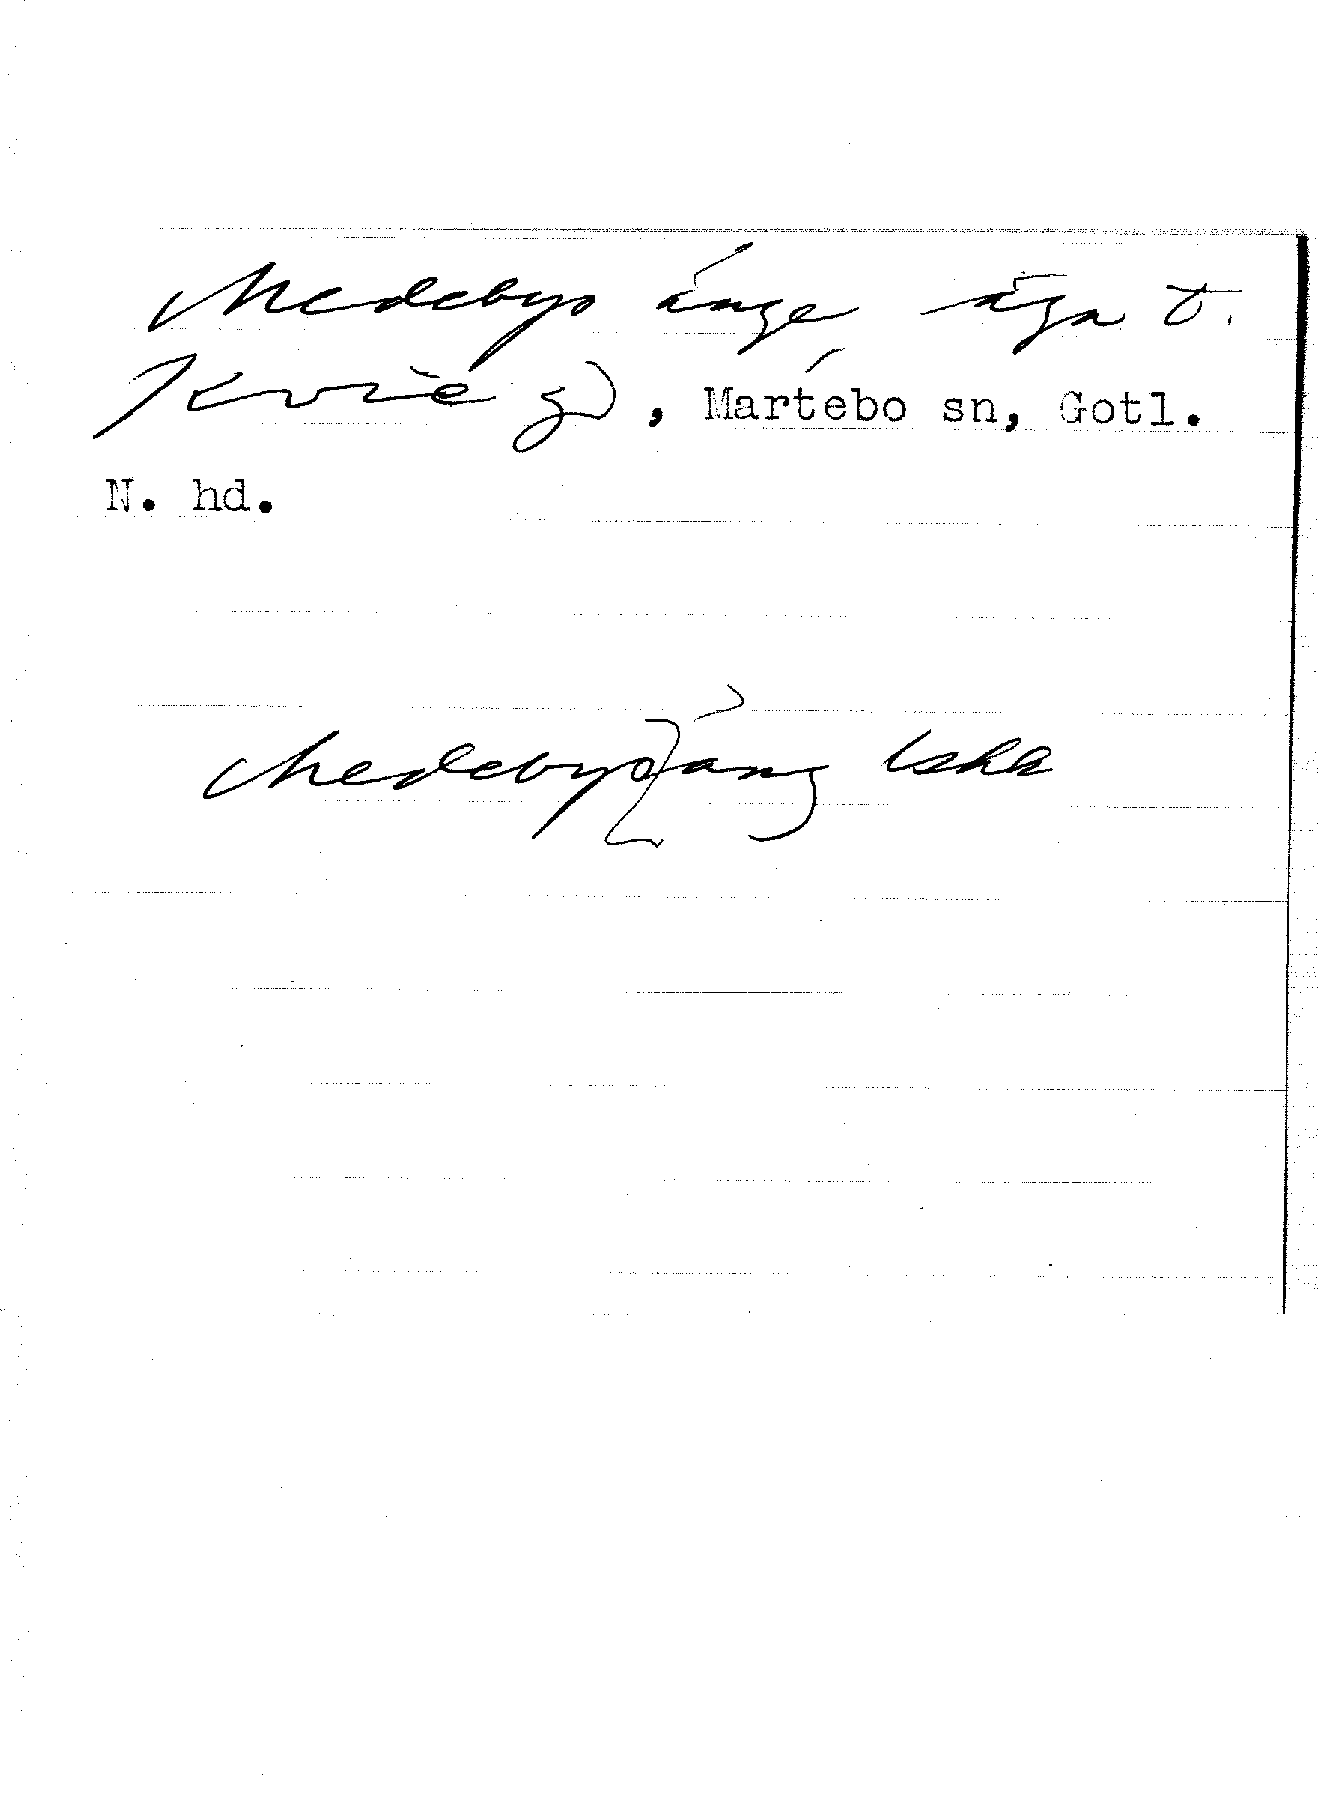 Medebys änge äga t.
Kvie gd, Martebo sn, Gotl.
N. hd.
Medebys äng Lska